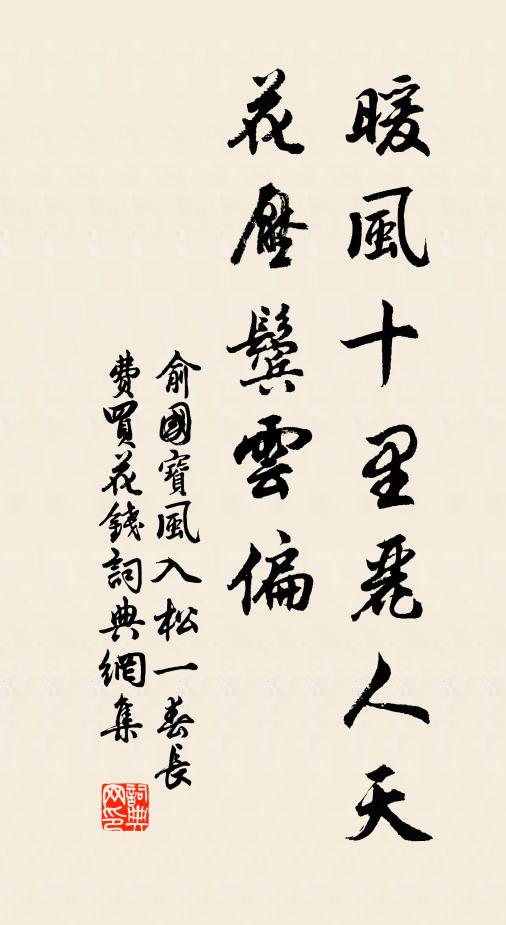 暖風十里麗人天
花壓鬢雲偏
俞國寶風入松一春長
費買花錢詞典網集
詞典网印